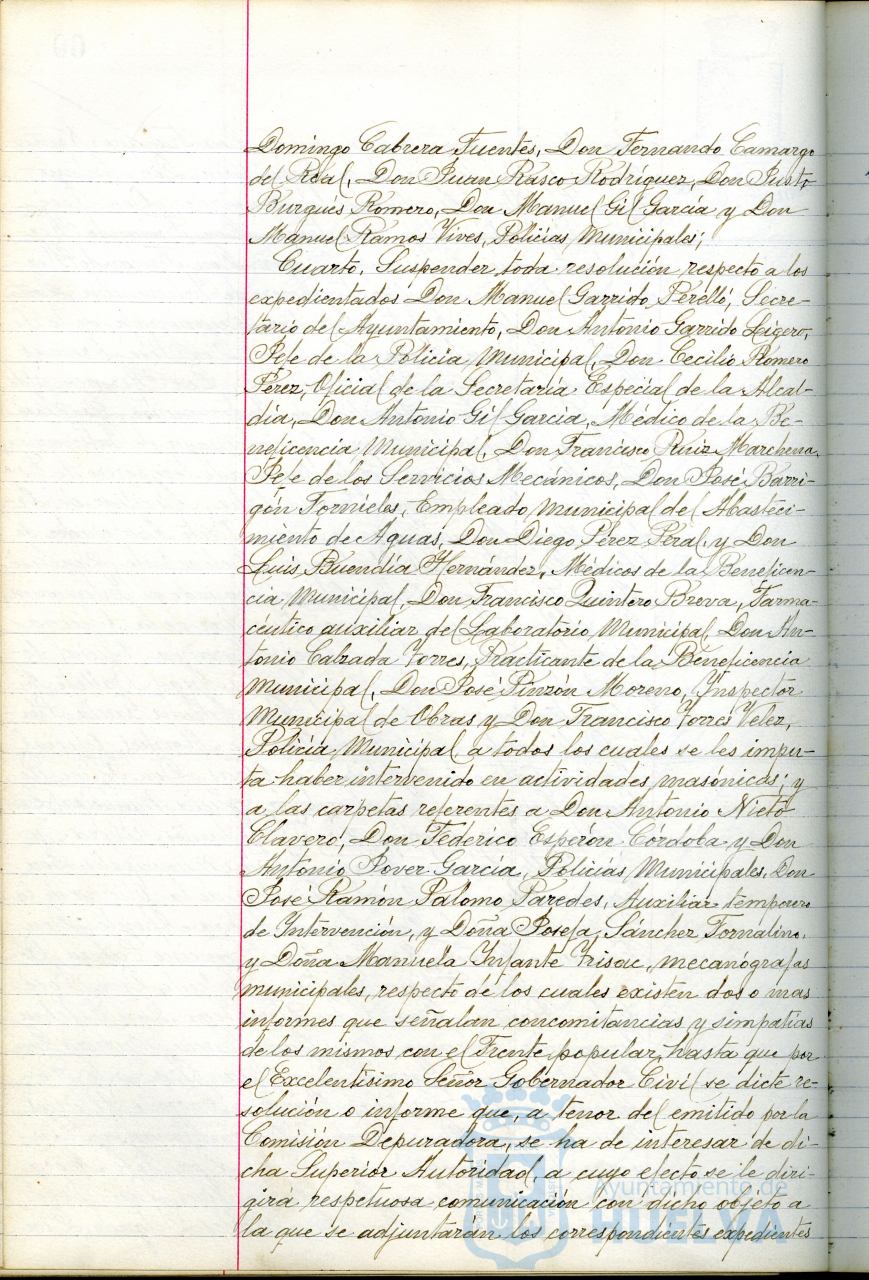 Domingo Cabrera Fuentes, Don Fernando Camargo
del Real, Don Juan Rasco Rodríguez, Don Justo
Burgués Romero, Don Manuel Gil García y Don
Manuel Ramos Vives, Policías Municipales;
Cuarto, Suspender toda resolución respecto a los
expedientados Don Manuel Garrido Perelló, Secre-
tario del Ayuntamiento, Don Antonio Garrido Ligero,
Jefe de la Policía Municipal, Don Cecilio Romero
Pérez, Oficial de la Secretaría Especial de la Alcal-
día, Don Antonio Gil García, Médico de la Be-
neficencia Municipal, Don Francisco Ruiz Marchena,
Jefe de los Servicios Mecánicos, Don José Barri-
gón Tornieles, Empleado Municipal del Abasteci-
miento de Aguas, Don Diego Pérez Peral, y Don
Luis Buendía Hernández, Médicos de la Beneficen-
cia Municipal, Don Francisco Quintero Breva, Farma-
céutico auxiliar del Laboratorio Municipal, Don An-
tonio Calzada Torres, Practicante de la Beneficencia
Municipal, Don José Pinzón Moreno, Ynspector
Municipal de Obras y Don Francisco Torres Velez,
Policía Municipal a todos los cuales se les impu-
ta haber intervenido en actividades masónicas; y
a las carpetas referentes a Don Antonio Nieto
Clavero, Don Federico Esperón Córdoba y Don
Antonio Jover García, Policías Municipales, Don
José Ramón Palomo Paredes, Auxiliar temporero
de Intervención, y Doña Josefa Sánchez Tornalino,
y Doña Manuela Infante Trisac, mecanógrafas
municipales, respecto de los cuales existen dos o mas
informes que señalan concomitancias y simpatías
de los mismos con el Frente popular, hasta que por
el Excelentísimo Señor Gobernador Civil se dicte re-
solución o informe que, a tenor del emitido por la
Comisión Depuradora, se ha de interesar de di-
cha Superior Autoridad, a cuyo efecto se le diri-
girá respetuosa comunicación con dicho objeto a
la que se adjuntarán los correspondientes expedientes
Ayuntamiento de
HUELVA